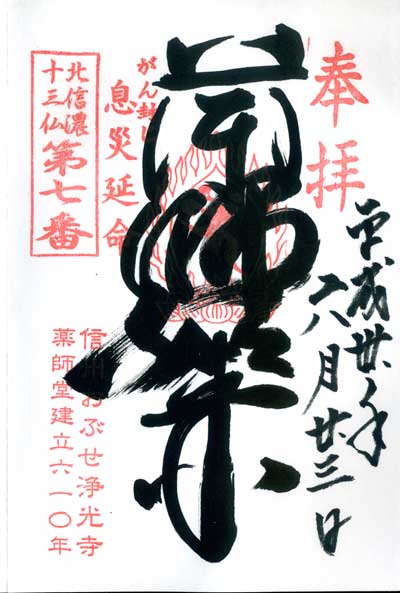 奉拝
平成卅年
八月廿三日
がん封じ
息災延命
北信濃
十三仏
第七番
信州おぶせ浄光寺
薬師堂建立六一〇年